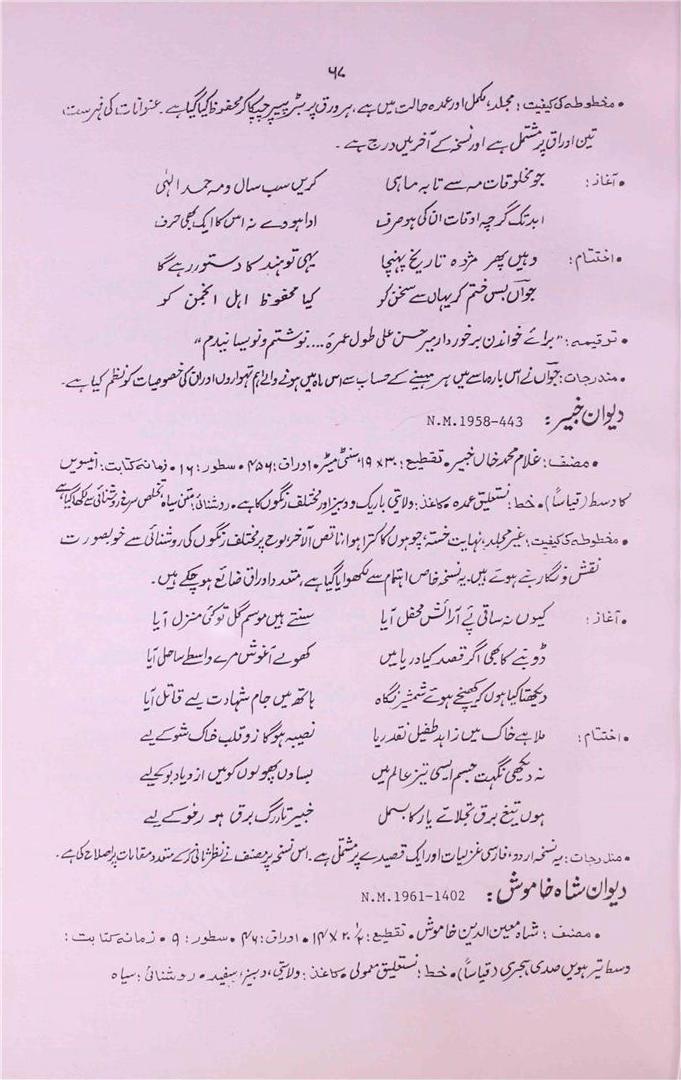 ۶۸
• مخطوطہ کی کیفیت: مجلد، مکمل اور عمدہ حالت میں ہے، ہر ورق پر بٹر پیپر چپکا کر محفوظ کیا گیا ہے۔ عنوانات کی فہرست
تین اوراق پر مشتمل ہے اور نسخہ کے آخر میں درج ہے۔
• آغاز: جو مخلوقات مہ سے تا بہ ماہی کریں سب سال و مہ حمد الٰہی
ابد تک گرچہ اوقات ان کی ہو صرف ادا ہووے نہ اس کا ایک بھی حرف
• اختتام: وہیں پھر مژدہ تاریخ پہنچا یہی تو ہند کا دستور رہے گا
جواں بس ختم کر یہاں سے سخن کو کیا محفوظ اہل انجمن کو
• ترقیمہ: "برائے خواندن برخوردار میر حسن علی طول عمرہٗ .... نوشتم و نویسانیدم"
• مندرجات: جواں نے اس بارہ ماسے میں ہر مہینے کے حساب سے اس ماہ میں ہونے والے اہم تہواروں اور اق کی خصوصیات کو نظم کیا ہے۔
دیوان خبیر: N.M.1958-443
• مصنف: غلام محمد خاں خبیر • تقطیع: ۳۰×۱۹ سنٹی میٹر • اوراق: ۴۵۶ • سطور: ۱۶ • زمانہ کتابت: انیسویں
کا وسط (قیاساً) • خط: نستعلیق عمدہ • کاغذ: ولایتی باریک و دبیز اور مختلف رنگوں کا ہے • روشنائی: متن سیاہ، تخلص سرخ روشنائی سے لکھا گیا ہے
• مخطوطہ کی کیفیت: غیر مجلد، نہایت خستہ، چوہوں کا کترا ہوا ناقص الآخر، لوح پر مختلف رنگوں کی روشنائی سے خوبصورت
نقش و نگار بنے ہوئے ہیں۔ یہ نسخہ خاص اہتمام سے لکھوایا گیا ہے، متعدد اوراق ضائع ہو چکے ہیں۔
• آغاز: کیوں نہ ساقی پئے آرائش محفل آیا سنتے ہیں موسم گل تو کئی منزل آیا
ڈوبنے کا بھی اگر قصد کیا دریا میں کھولے آغوش مرے واسطے ساحل آیا
دیکھتا کیا ہوں کہ کھینچے ہوئے شمشیر نگاہ ہاتھ میں جام شہادت لیے قاتل آیا
• اختتام: ملا ہے خاک میں زاہد طفیل نقد ریا نصیبہ ہوگا زر و قلب خاک شو کے لیے
نہ دیکھی نگہت جسم ایسی تیز عالم میں بساوں پھولوں کو میں ازدیاد بو کے لیے
ہوں تیغ برق تجلائے یار کا بسمل خبیر تار رگ برق ہو رفو کے لیے
• مندرجات: یہ نسخہ اردو، فارسی غزلیات اور ایک قصیدے پر مشتمل ہے۔ اس نسخہ پر مصنف نے نظر ثانی کر کے متعدد مقامات پر اصلاح کی ہے۔
دیوان شاہ خاموش: N.M.1961-1402
• مصنف: شاہ معین الدین خاموش • تقطیع: ۲۰½×۱۴ • اوراق: ۴۶ • سطور: ۹ • زمانہ کتابت:
وسط تیرہویں صدی ہجری (قیاساً) • خط: نستعلیق معمولی • کاغذ: ولایتی، دبیز، سفید • روشنائی: سیاہ